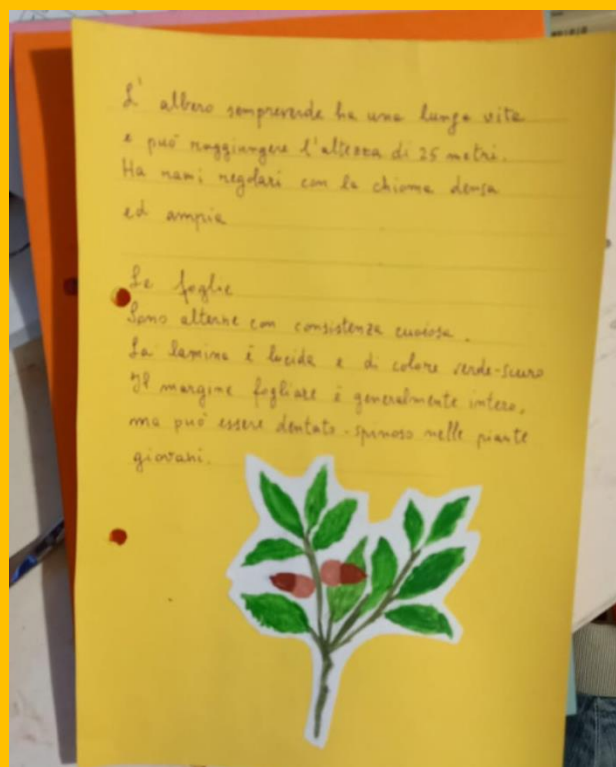 L'albero sempreverde ha una lunga vita
e può raggiungere l'altezza di 25 metri.
Ha rami regolari con la chioma densa
ed ampia
Le foglie
Sono alterne con consistenza cuoiosa.
La lamina è lucida e di colore verde-scuro
Il margine fogliare è generalmente intero,
ma può essere dentato-spinoso nelle piante
giovani.